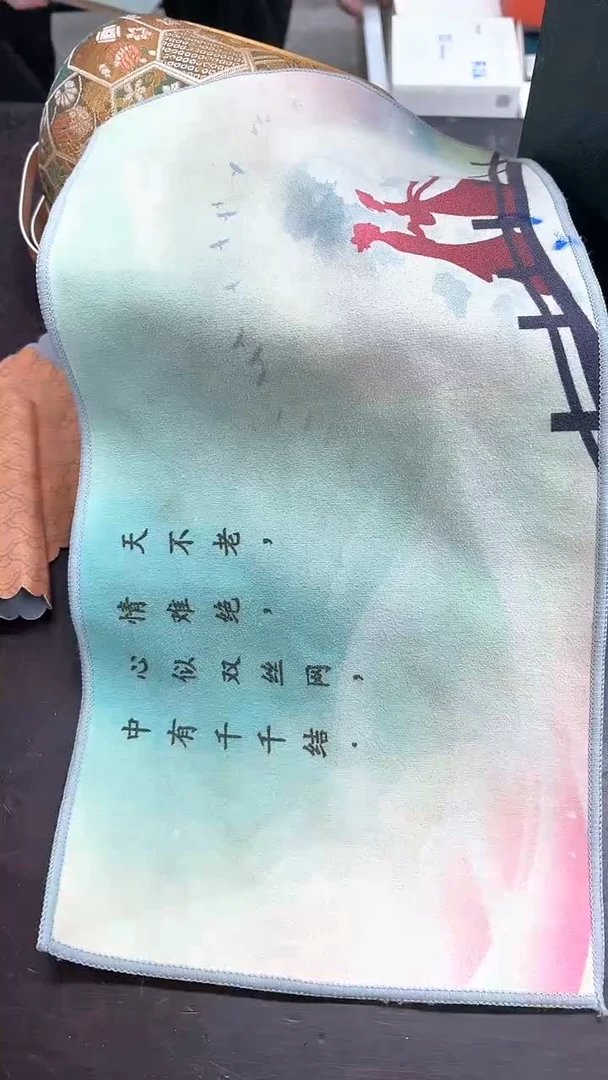 天不老，
情难绝，
心似双丝网，
中有千千结.